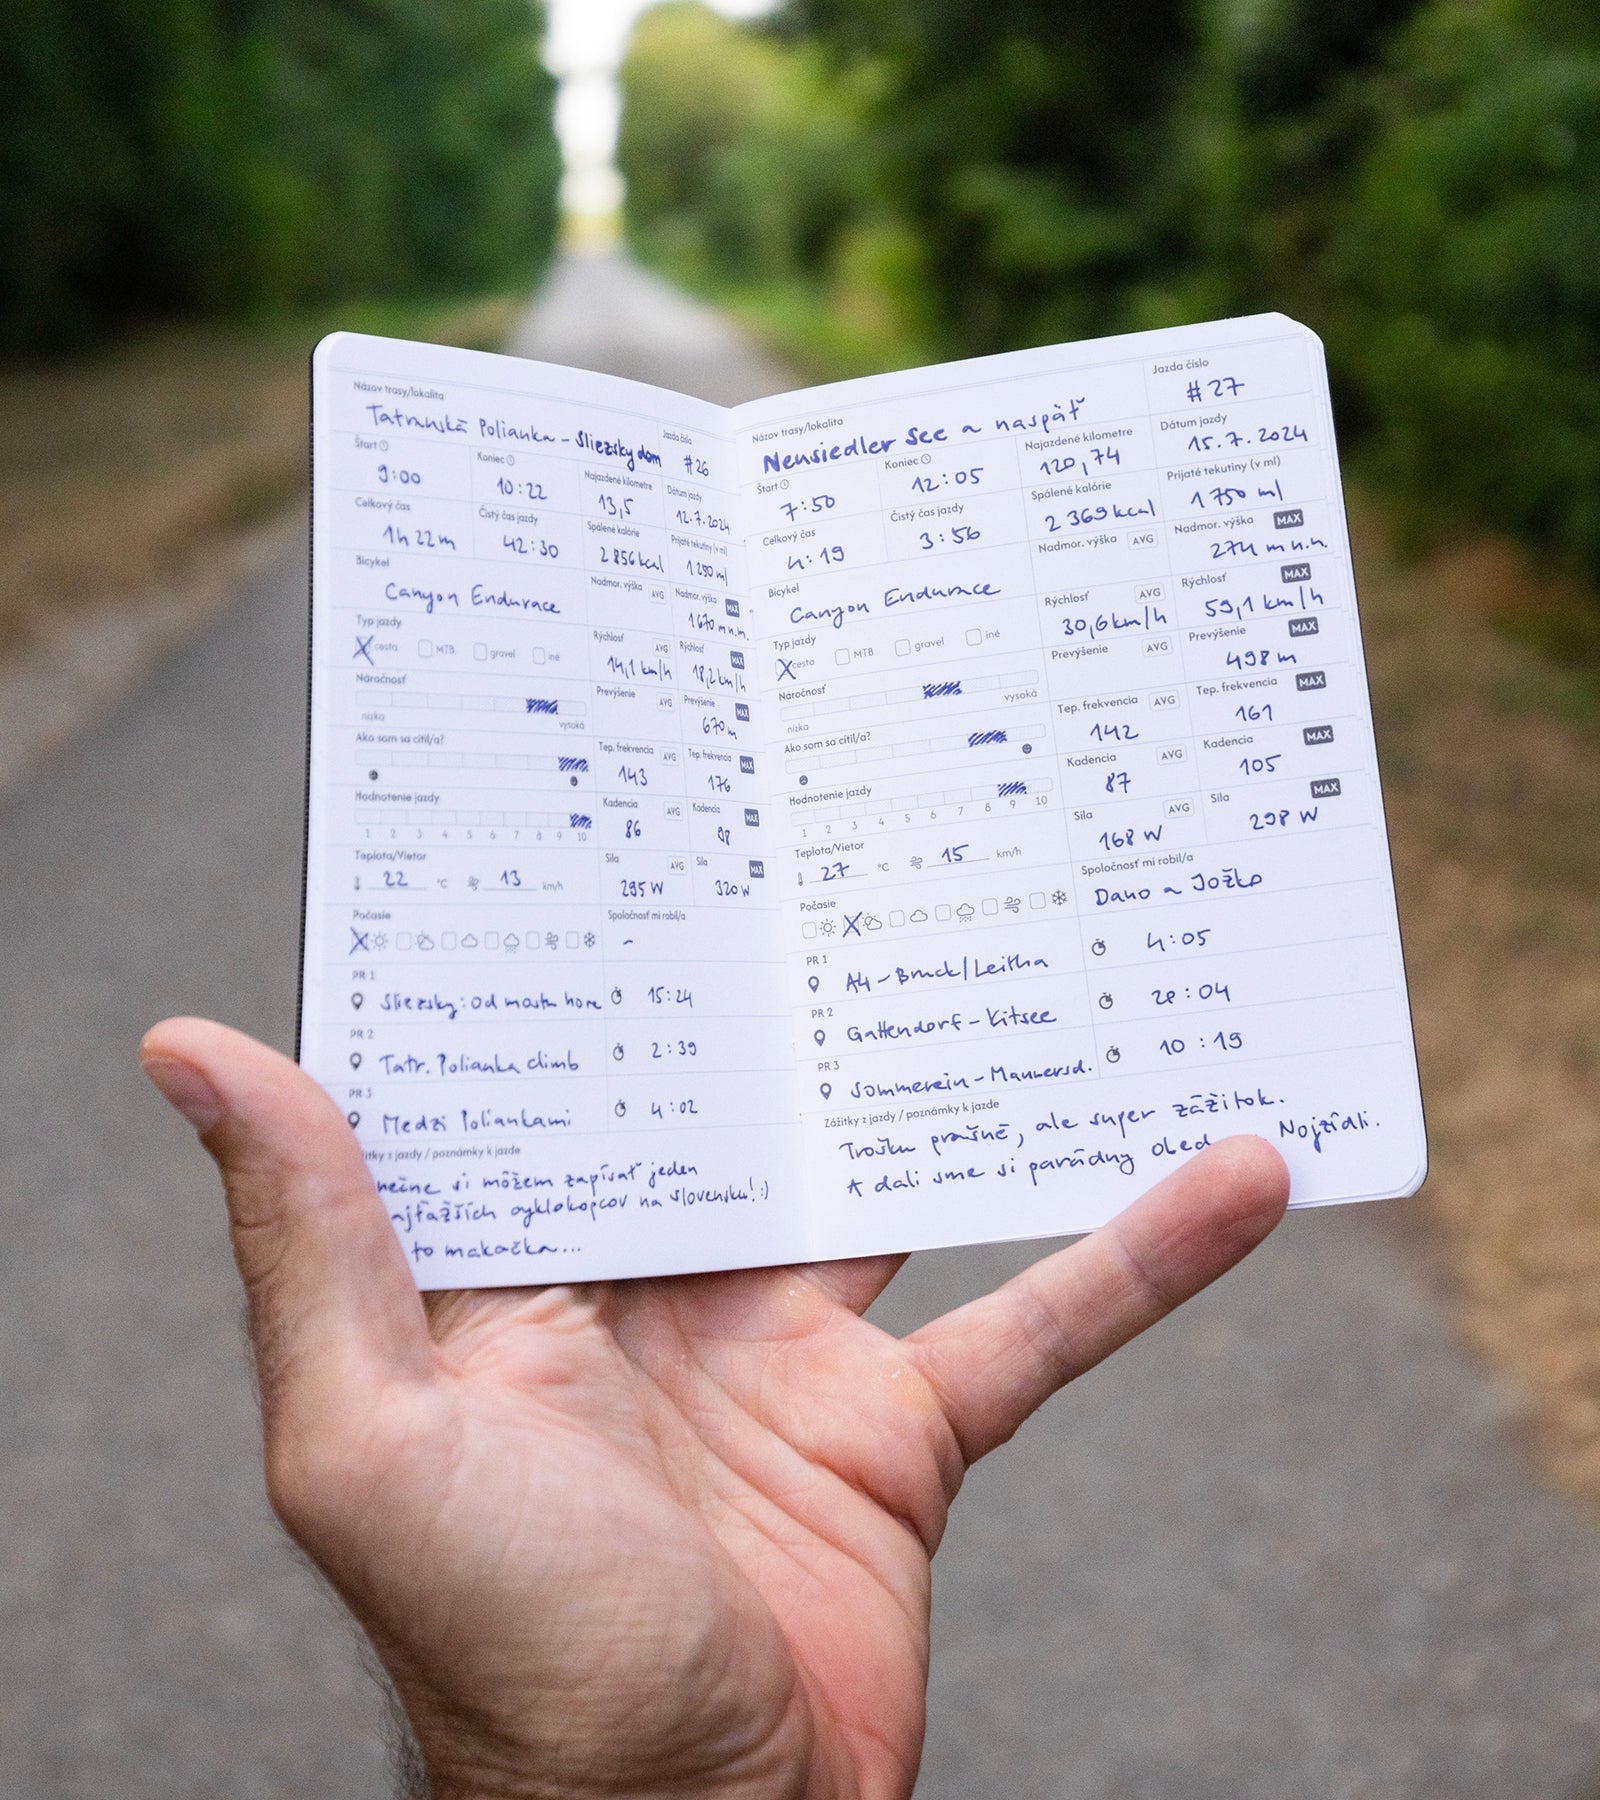 Názov trasy/lokalita
Tatranská Polianka - Sliezsky dom
Jazda číslo
#26
Štart
9:00
Koniec
10:22
Najazdené kilometre
13,5
Dátum jazdy
12.7.2024
Celkový čas
1h 22m
Čistý čas jazdy
42:30
Spálené kalórie
2 856 kcal
Prijaté tekutiny (v ml)
1 250 ml
Bicykel
Canyon Endurace
Nadmor. výška AVG
Nadmor. výška MAX
1670 m n.m.
Typ jazdy
X cesta MTB gravel iné
Rýchlosť AVG
14,1 km/h
Rýchlosť MAX
18,2 km/h
Náročnosť
nízka vysoká
Prevýšenie AVG
Prevýšenie MAX
670 m
Ako som sa cítil/a?
Tep. frekvencia AVG
143
Tep. frekvencia MAX
176
Hodnotenie jazdy
1 2 3 4 5 6 7 8 9 10
Kadencia AVG
86
Kadencia MAX
98
Teplota/Vietor
22 °C 13 km/h
Sila AVG
295 W
Sila MAX
320 W
Počasie
X
Spoločnosť mi robil/a
-
PR 1
Sliezsky: od mostu hore 15:24
PR 2
Tatr. Polianka climb 2:39
PR 3
Medzi Poliankami 4:02
itky z jazdy / poznámky k jazde
nečne si môžem zapísať jeden
ajťažších cyklokopcov na Slovensku! :)
to makačka...
Názov trasy/lokalita
Neusiedler See a naspäť
Jazda číslo
#27
Štart
7:50
Koniec
12:05
Najazdené kilometre
120,74
Dátum jazdy
15.7.2024
Celkový čas
4:19
Čistý čas jazdy
3:56
Spálené kalórie
2 369 kcal
Prijaté tekutiny (v ml)
1 750 ml
Bicykel
Canyon Endurace
Nadmor. výška AVG
Nadmor. výška MAX
274 m n.m.
Typ jazdy
X cesta MTB gravel iné
Rýchlosť AVG
30,6 km/h
Rýchlosť MAX
59,1 km/h
Náročnosť
nízka vysoká
Prevýšenie AVG
Prevýšenie MAX
498 m
Ako som sa cítil/a?
Tep. frekvencia AVG
142
Tep. frekvencia MAX
161
Hodnotenie jazdy
1 2 3 4 5 6 7 8 9 10
Kadencia AVG
87
Kadencia MAX
105
Teplota/Vietor
27 °C 15 km/h
Sila AVG
168 W
Sila MAX
298 W
Počasie
X
Spoločnosť mi robil/a
Dano a Jožko
PR 1
A4 - Bruck/Leitha 4:05
PR 2
Gattendorf - Kitsee 28:04
PR 3
Sommerein - Mannersd. 10:19
Zážitky z jazdy / poznámky k jazde
Trošku prašné, ale super zážitok.
A dali sme si parádny obed Nojzídli.